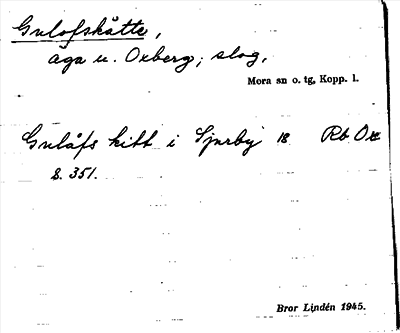 Gulofskåtte,
äga u. Oxberg; slog,
Mora sn o. tg, Kopp. l.
Gulåfs kitt i Sjurby 18 Rb Ox
s. 351.
Bror Lindén 1945.